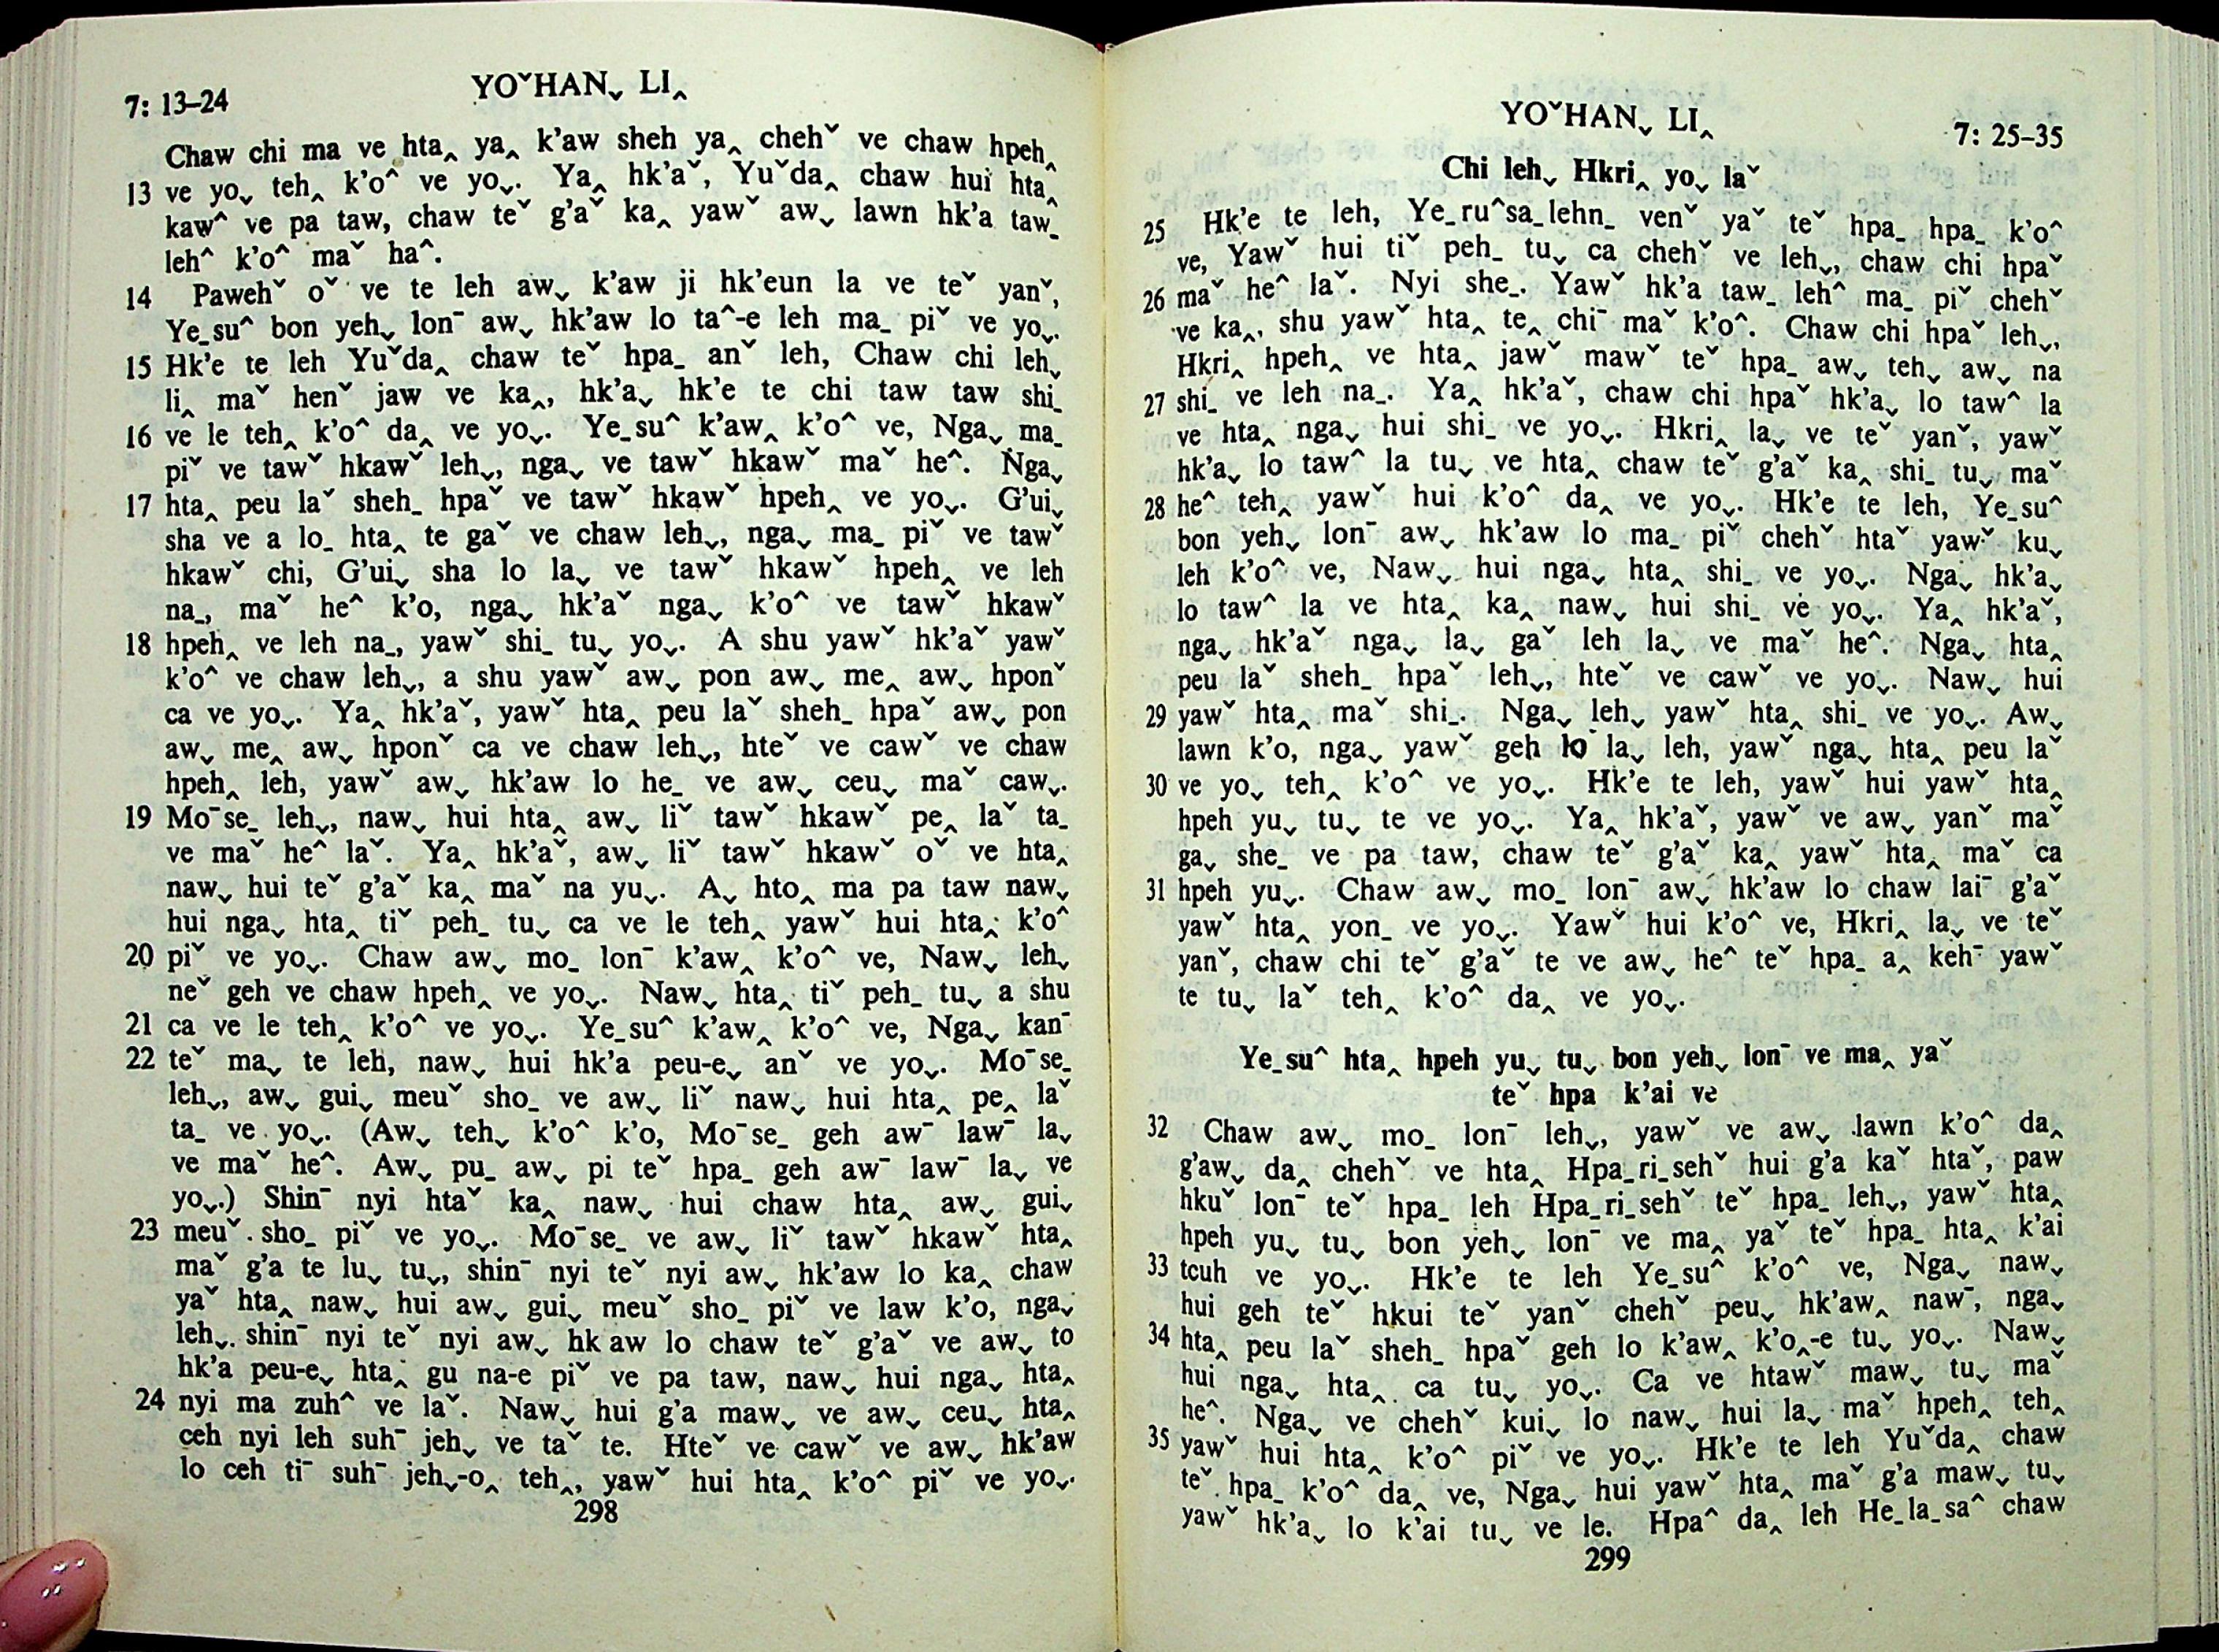 7: 13–24
YOˇHANˬ LI‸
Chaw chi ma ve hta‸ ya‸ k’aw sheh ya‸ chehˇ ve chaw hpeh‸
13 ve yoˬ teh‸ k’o^ ve yoˬ. Ya‸ hk’aˇ, Yuˇda‸ chaw hui hta‸
kaw^ ve pa taw, chaw teˇ g’aˇ ka‸ yawˇ awˬ lawn hk’a taw_
leh^ k’o^ maˇ ha^.
14 Pawehˇ oˇ ve te leh awˬ k’aw ji hk’eun la ve teˇ yanˇ,
Ye_su^ bon yehˬ lon¯ awˬ hk’aw lo ta^-e leh ma_ piˇ ve yoˬ.
15 Hk’e te leh Yuˇda‸ chaw teˇ hpa_ anˇ leh, Chaw chi lehˬ
li‸ maˇ henˇ jaw ve ka‸, hk’aˬ hk’e te chi taw taw shi_
16 ve le teh‸ k’o^ da‸ ve yoˬ. Ye_su^ k’aw‸ k’o^ ve, Ngaˬ ma_
piˇ ve tawˇ hkawˇ lehˬ, ngaˬ ve tawˇ hkawˇ maˇ he^. Ngaˬ
17 hta‸ peu laˇ sheh_ hpaˇ ve tawˇ hkawˇ hpeh‸ ve yoˬ. G’uiˬ
sha ve a lo_ hta‸ te gaˇ ve chaw lehˬ, ngaˬ ma_ piˇ ve tawˇ
hkawˇ chi, G’uiˬ sha lo laˬ ve tawˇ hkawˇ hpeh‸ ve leh
na_, maˇ he^ k’o, ngaˬ hk’aˇ ngaˬ k’o^ ve tawˇ hkawˇ
18 hpeh‸ ve leh na_, yawˇ shi_ tuˬ yoˬ. A shu yawˇ hk’aˇ yawˇ
k’o^ ve chaw lehˬ, a shu yawˇ awˬ pon awˬ me‸ awˬ hponˇ
ca ve yoˬ. Ya‸ hk’aˇ, yawˇ hta‸ peu laˇ sheh_ hpaˇ awˬ pon
awˬ me‸ awˬ hponˇ ca ve chaw lehˬ, hteˇ ve cawˇ ve chaw
hpeh‸ leh, yawˇ awˬ hk’aw lo he_ ve awˬ ceuˬ maˇ cawˬ.
19 Mo¯se_ lehˬ, nawˬ hui hta‸ awˬ liˇ tawˇ hkawˇ pe‸ laˇ ta_
ve maˇ he^ laˇ. Ya‸ hk’aˇ, awˬ liˇ tawˇ hkawˇ oˇ ve hta‸
nawˬ hui teˇ g’aˇ ka‸ maˇ na yuˬ. Aˬ hto‸ ma pa taw nawˬ
hui ngaˬ hta‸ tiˇ peh_ tuˬ ca ve le teh‸ yawˇ hui hta‸ k’o^
20 piˇ ve yoˬ. Chaw awˬ mo_ lon¯ k’aw‸ k’o^ ve, Nawˬ lehˬ
neˇ geh ve chaw hpeh‸ ve yoˬ. Nawˬ hta‸ tiˇ peh_ tuˬ a shu
21 ca ve le teh‸ k’o^ ve yoˬ. Ye_su^ k’aw‸ k’o^ ve, Ngaˬ kan¯
22 teˇ maˬ te leh, nawˬ hui hk’a peu-eˬ anˇ ve yoˬ. Mo¯se_
lehˬ, awˬ guiˬ meuˇ sho_ ve awˬ liˇ nawˬ hui hta‸ pe‸ laˇ
ta_ ve yoˬ. (Awˬ tehˬ k’o^ k’o, Mo¯se_ geh aw¯ law¯ laˬ
ve maˇ he^. Awˬ pu_ awˬ pi teˇ hpa_ geh aw¯ law¯ laˬ ve
yoˬ.) Shin¯ nyi htaˇ ka‸ nawˬ hui chaw hta‸ awˬ guiˬ
23 meuˇ sho_ piˇ ve yoˬ. Mo¯se_ ve awˬ liˇ tawˇ hkawˇ hta‸
maˇ g’a te luˬ tuˬ, shin¯ nyi teˇ nyi awˬ hk’aw lo ka‸ chaw
yaˇ hta‸ nawˬ hui awˬ guiˬ meuˇ sho_ piˇ ve law k’o, ngaˬ
lehˬ. shin¯ nyi teˇ nyi awˬ hk aw lo chaw teˇ g’aˇ ve awˬ to
hk’a peu-eˬ hta‸ gu na-e piˇ ve pa taw, nawˬ hui ngaˬ hta‸
24 nyi ma zuh^ ve laˇ. Nawˬ hui g’a mawˬ ve awˬ ceuˬ hta‸
ceh nyi leh suh¯ jehˬ ve taˇ te. Hteˇ ve cawˇ ve awˬ hk’aw
lo ceh ti¯ suh¯ jehˬ-o‸ teh‸, yawˇ hui hta‸ k’o^ piˇ ve yoˬ.
298
YOˇHANˬ LI‸
7: 25–35
Chi lehˬ Hkri‸ yoˬ laˇ
25 Hk’e te leh, Ye_ru^sa_lehn_ venˇ yaˇ teˇ hpa_ hpa_ k’o^
ve, Yawˇ hui tiˇ peh_ tuˬ ca chehˇ ve lehˬ, chaw chi hpaˇ
26 maˇ he^ laˇ. Nyi she_. Yawˇ hk’a taw_ leh^ ma_ piˇ chehˇ
ve ka‸, shu yawˇ hta‸ te‸ chi¯ maˇ k’o^. Chaw chi hpaˇ lehˬ,
Hkri‸ hpeh‸ ve hta‸ jawˇ mawˇ teˇ hpa_ awˬ tehˬ awˬ na
27 shi_ ve leh na_. Ya‸ hk’aˇ, chaw chi hpaˇ hk’aˬ lo taw^ la
ve hta‸ ngaˬ hui shi_ ve yoˬ. Hkri‸ laˬ ve teˇ yanˇ, yawˇ
hk’aˬ lo taw^ la tuˬ ve hta‸ chaw teˇ g’aˇ ka‸ shi_ tuˬ maˇ
28 he^ teh‸ yawˇ hui k’o^ da‸ ve yoˬ. Hk’e te leh, Ye_su^
bon yehˬ lon¯ awˬ hk’aw lo ma_ piˇ chehˇ htaˇ yawˇ kuˬ
leh k’o^ ve, Nawˬ hui ngaˬ hta‸ shi_ ve yoˬ. Ngaˬ hk’aˬ
lo taw^ la ve hta‸ ka‸ nawˬ hui shi_ ve yoˬ. Ya‸ hk’aˇ,
ngaˬ hk’aˇ ngaˬ laˬ gaˇ leh laˬ ve maˇ he^. Ngaˬ hta‸
peu laˇ sheh_ hpaˇ lehˬ, hteˇ ve cawˇ ve yoˬ. Nawˬ hui
29 yawˇ hta‸ maˇ shi_. Ngaˬ lehˬ yawˇ hta‸ shi_ ve yoˬ. Awˬ
lawn k’o, ngaˬ yawˇ geh lo laˬ leh, yawˇ ngaˬ hta‸ peu laˇ
30 ve yoˬ teh‸ k’o^ ve yoˬ. Hk’e te leh, yawˇ hui yawˇ hta‸
hpeh yuˬ tuˬ te ve yoˬ. Ya‸ hk’aˇ, yawˇ ve awˬ yanˇ maˇ
gaˬ she_ ve pa taw, chaw teˇ g’aˇ ka‸ yawˇ hta‸ maˇ ca
31 hpeh yuˬ. Chaw awˬ mo_ lon¯ awˬ hk’aw lo chaw lai¯ g’aˇ
yawˇ hta‸ yon_ ve yoˬ. Yawˇ hui k’o^ ve, Hkri‸ laˬ ve teˇ
yanˇ, chaw chi teˇ g’aˇ te ve awˬ he^ teˇ hpa_ a‸ keh¯ yawˇ
te tuˬ laˇ teh‸ k’o^ da‸ ve yoˬ.
Ye_su^ hta‸ hpeh yuˬ tuˬ bon yehˬ lon¯ ve ma‸ yaˇ
teˇ hpa k’ai ve
32 Chaw awˬ mo_ lon¯ lehˬ, yawˇ ve awˬ lawn k’o^ da‸
g’awˬ da‸ chehˇ ve hta‸ Hpa_ri_sehˇ hui g’a kaˇ htaˇ, paw
hkuˇ lon¯ teˇ hpa_ leh Hpa_ri_sehˇ teˇ hpa_ lehˬ, yawˇ hta‸
hpeh yuˬ tuˬ bon yehˬ lon¯ ve ma‸ yaˇ teˇ hpa_ hta‸ k’ai
33 tcuh ve yoˬ. Hk’e te leh Ye_su^ k’o^ ve, Ngaˬ nawˬ
hui geh teˇ hkui teˇ yanˇ chehˇ peuˬ hk’aw‸ naw¯, ngaˬ
34 hta‸ peu laˇ sheh_ hpaˇ geh lo k’aw‸ k’o‸-e tuˬ yoˬ. Nawˬ
hui ngaˬ hta‸ ca tuˬ yoˬ. Ca ve htawˇ mawˬ tuˬ maˇ
he^. Ngaˬ ve chehˇ kuiˬ lo nawˬ hui laˬ maˇ hpeh‸ teh‸
35 yawˇ hui hta‸ k’o^ piˇ ve yoˬ. Hk’e te leh Yuˇda‸ chaw
teˇ hpa_ k’o^ da‸ ve, Ngaˬ hui yawˇ hta‸ maˇ g’a mawˬ tuˬ
yawˇ hk’aˬ lo k’ai tuˬ ve le. Hpa^ da‸ leh He_la_sa^ chaw
299